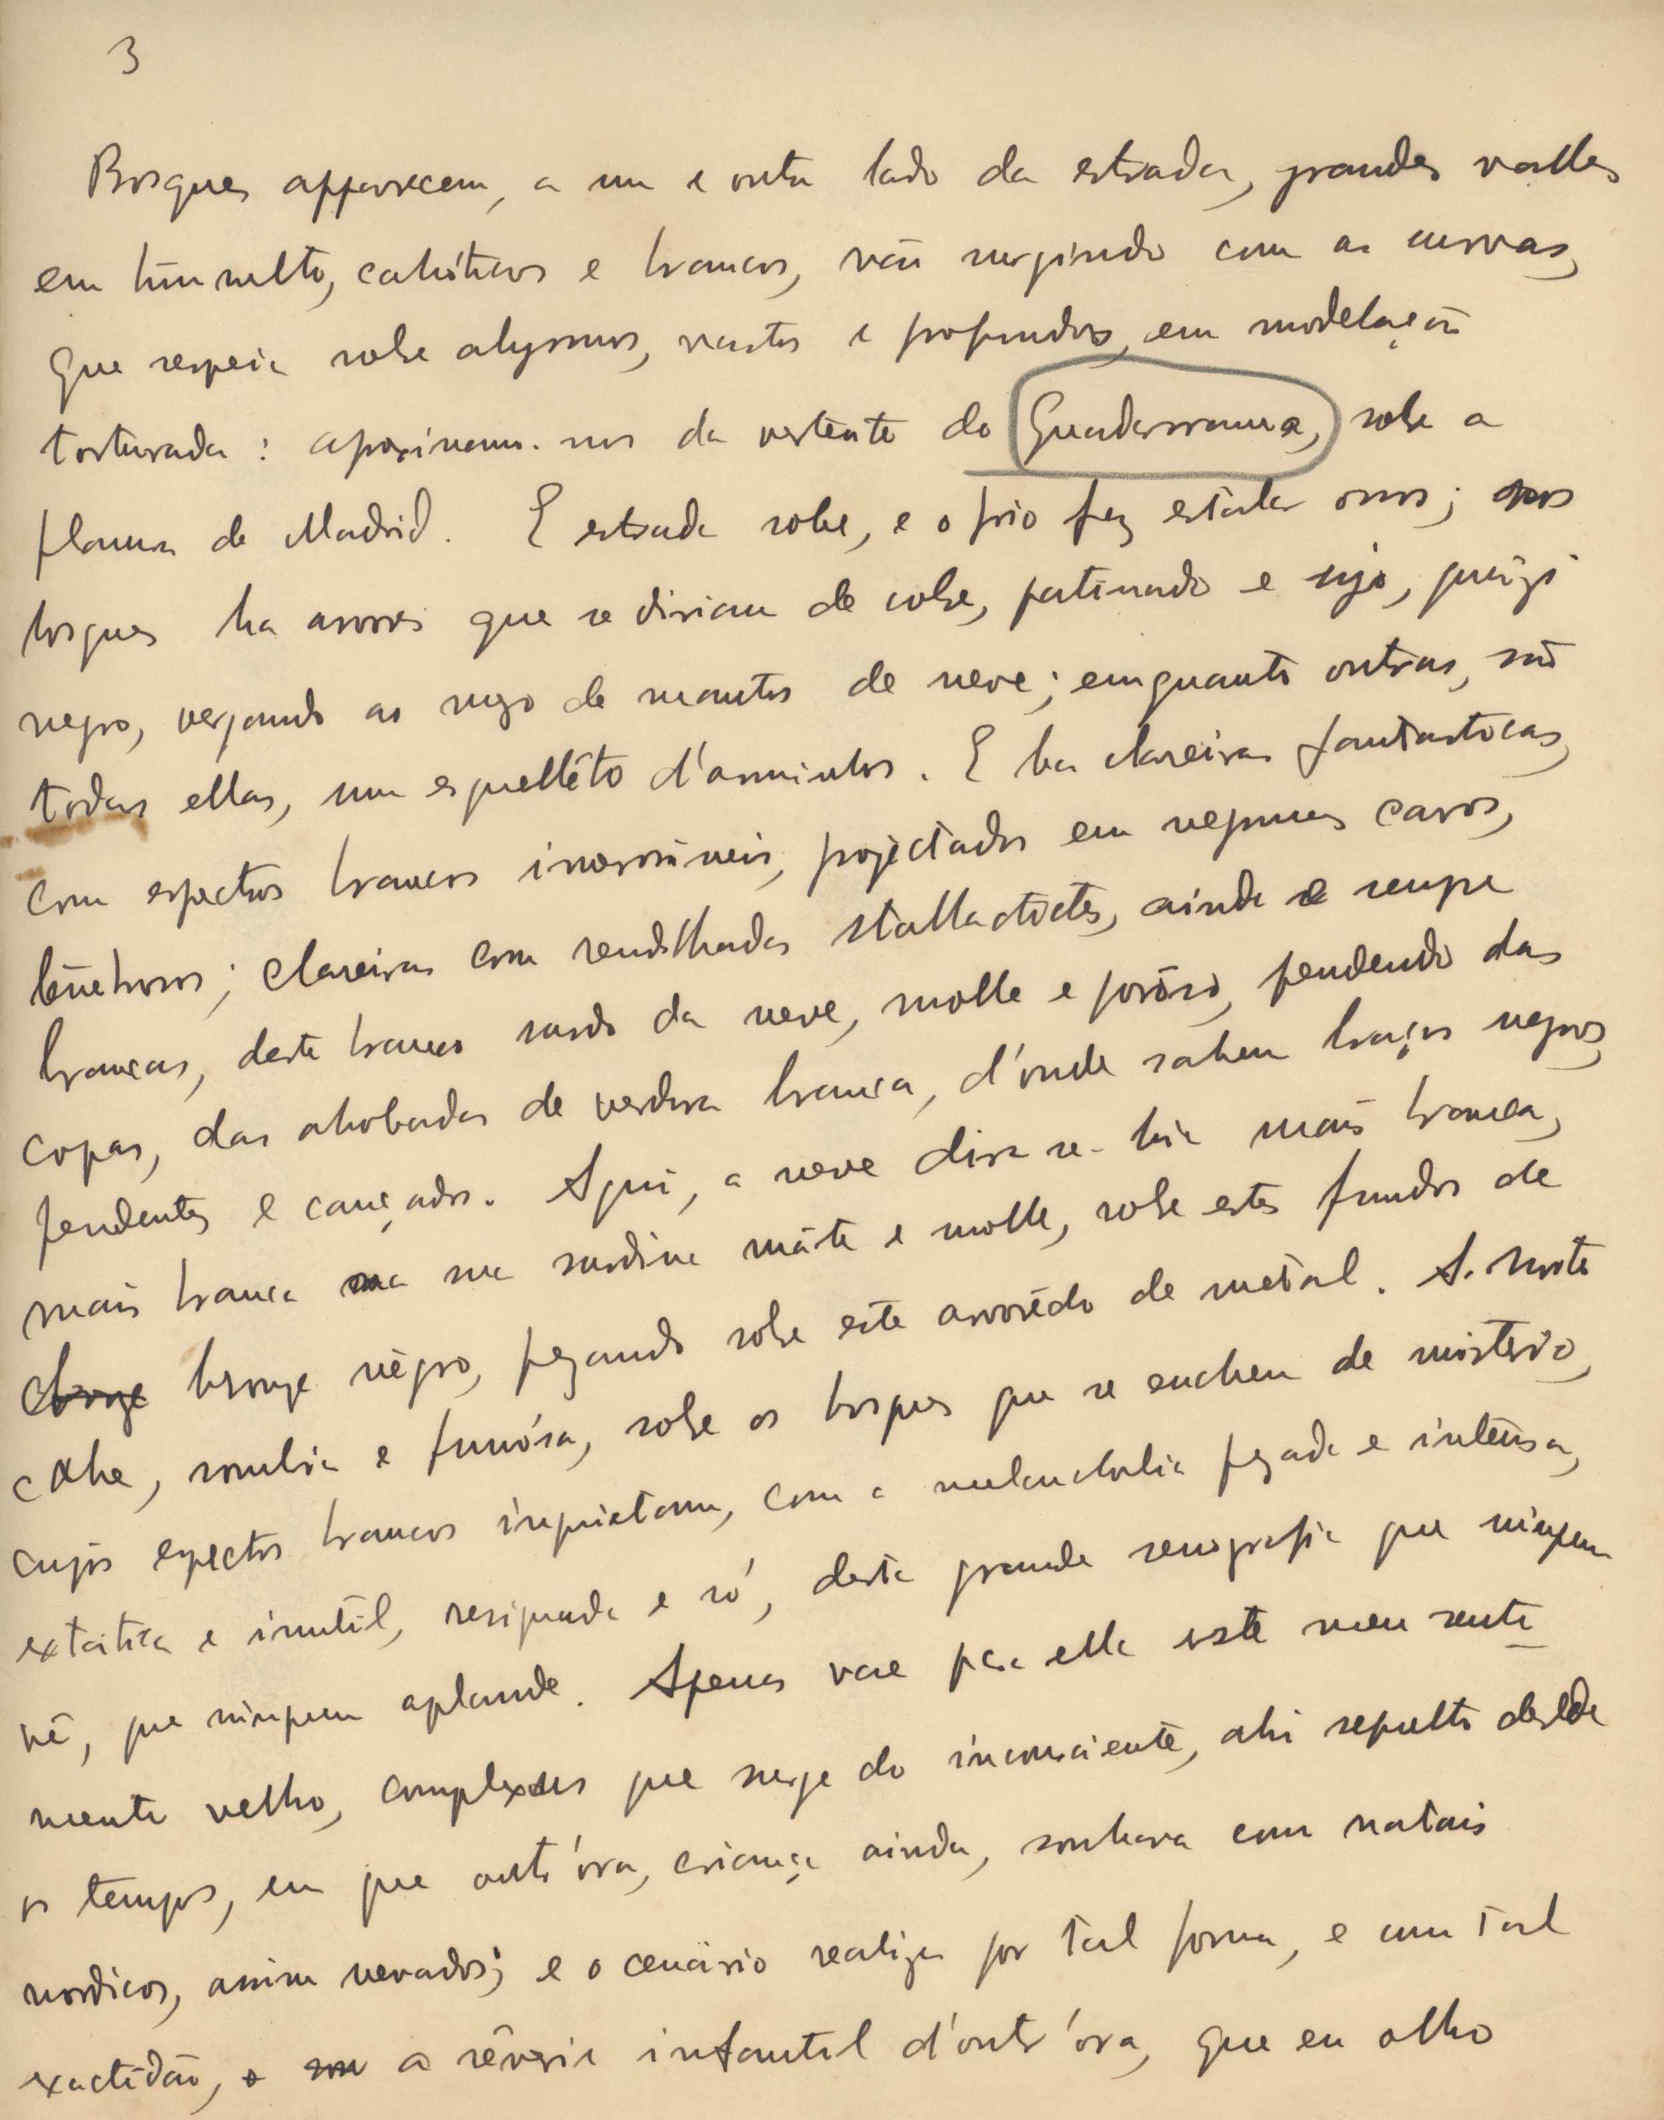 3
Bosques apparecem, a um e outro lado da estrada, grandes valles
em tumulto, cahóticos e brancos, vão surgindo com as curvas,
que sobre abysmos, vastos e profundos, em modelação
torturada: aproximamo-nos da vertente do Guadarrama, sobre a
planura de Madrid. E estrada sobe, e o frio fez estalar ossos; nos
bosques ha arvores que se diriam de cobre, patinado e sujo, quázi
negro, vergando ao pezo de mantos de neve; emquanto outras, são
todas ellas, um esqueléto d'arminhos. E ha clareiras fantasticas,
com espectros brancos inverosimeis, projectados em negrumes cavos,
tenebrosos; clareiras com rendilhadas stallactites, ainda e sempre
brancas, deste branco surdo da neve, molle e porôso, pendendo das
copas, das abobadas de verdura branca, d'onde sahem braços negros,
pendentes e cançados. Aqui, a neve dir-se-hia mais branca,
mais branca na sua surdina máte e molle, sobre estes fundos de
bronze négro, pezando sobre este arvorêdo de metal. A. Noite
cahe, sombria e fumósa, sobre os bosques que se enchem de misterio,
cujos espectros brancos inquietam, com a melancholia pezada e intensa,
extatica e inutil, resignada e só, desta grande scenografia que ninguem
vê, que ninguem aplaude. Apenas vae para ella este meu senti-
mento velho, complexus que surge do inconsciente, ahi sepulto desde
os tempos, em que outr'ora, criança ainda, sonhava com natais
nordicos, assim nevados; e o cenário realiza por tal forma, e com tal
exactidão, a rêverie infantil d'outr'ora, que eu olho